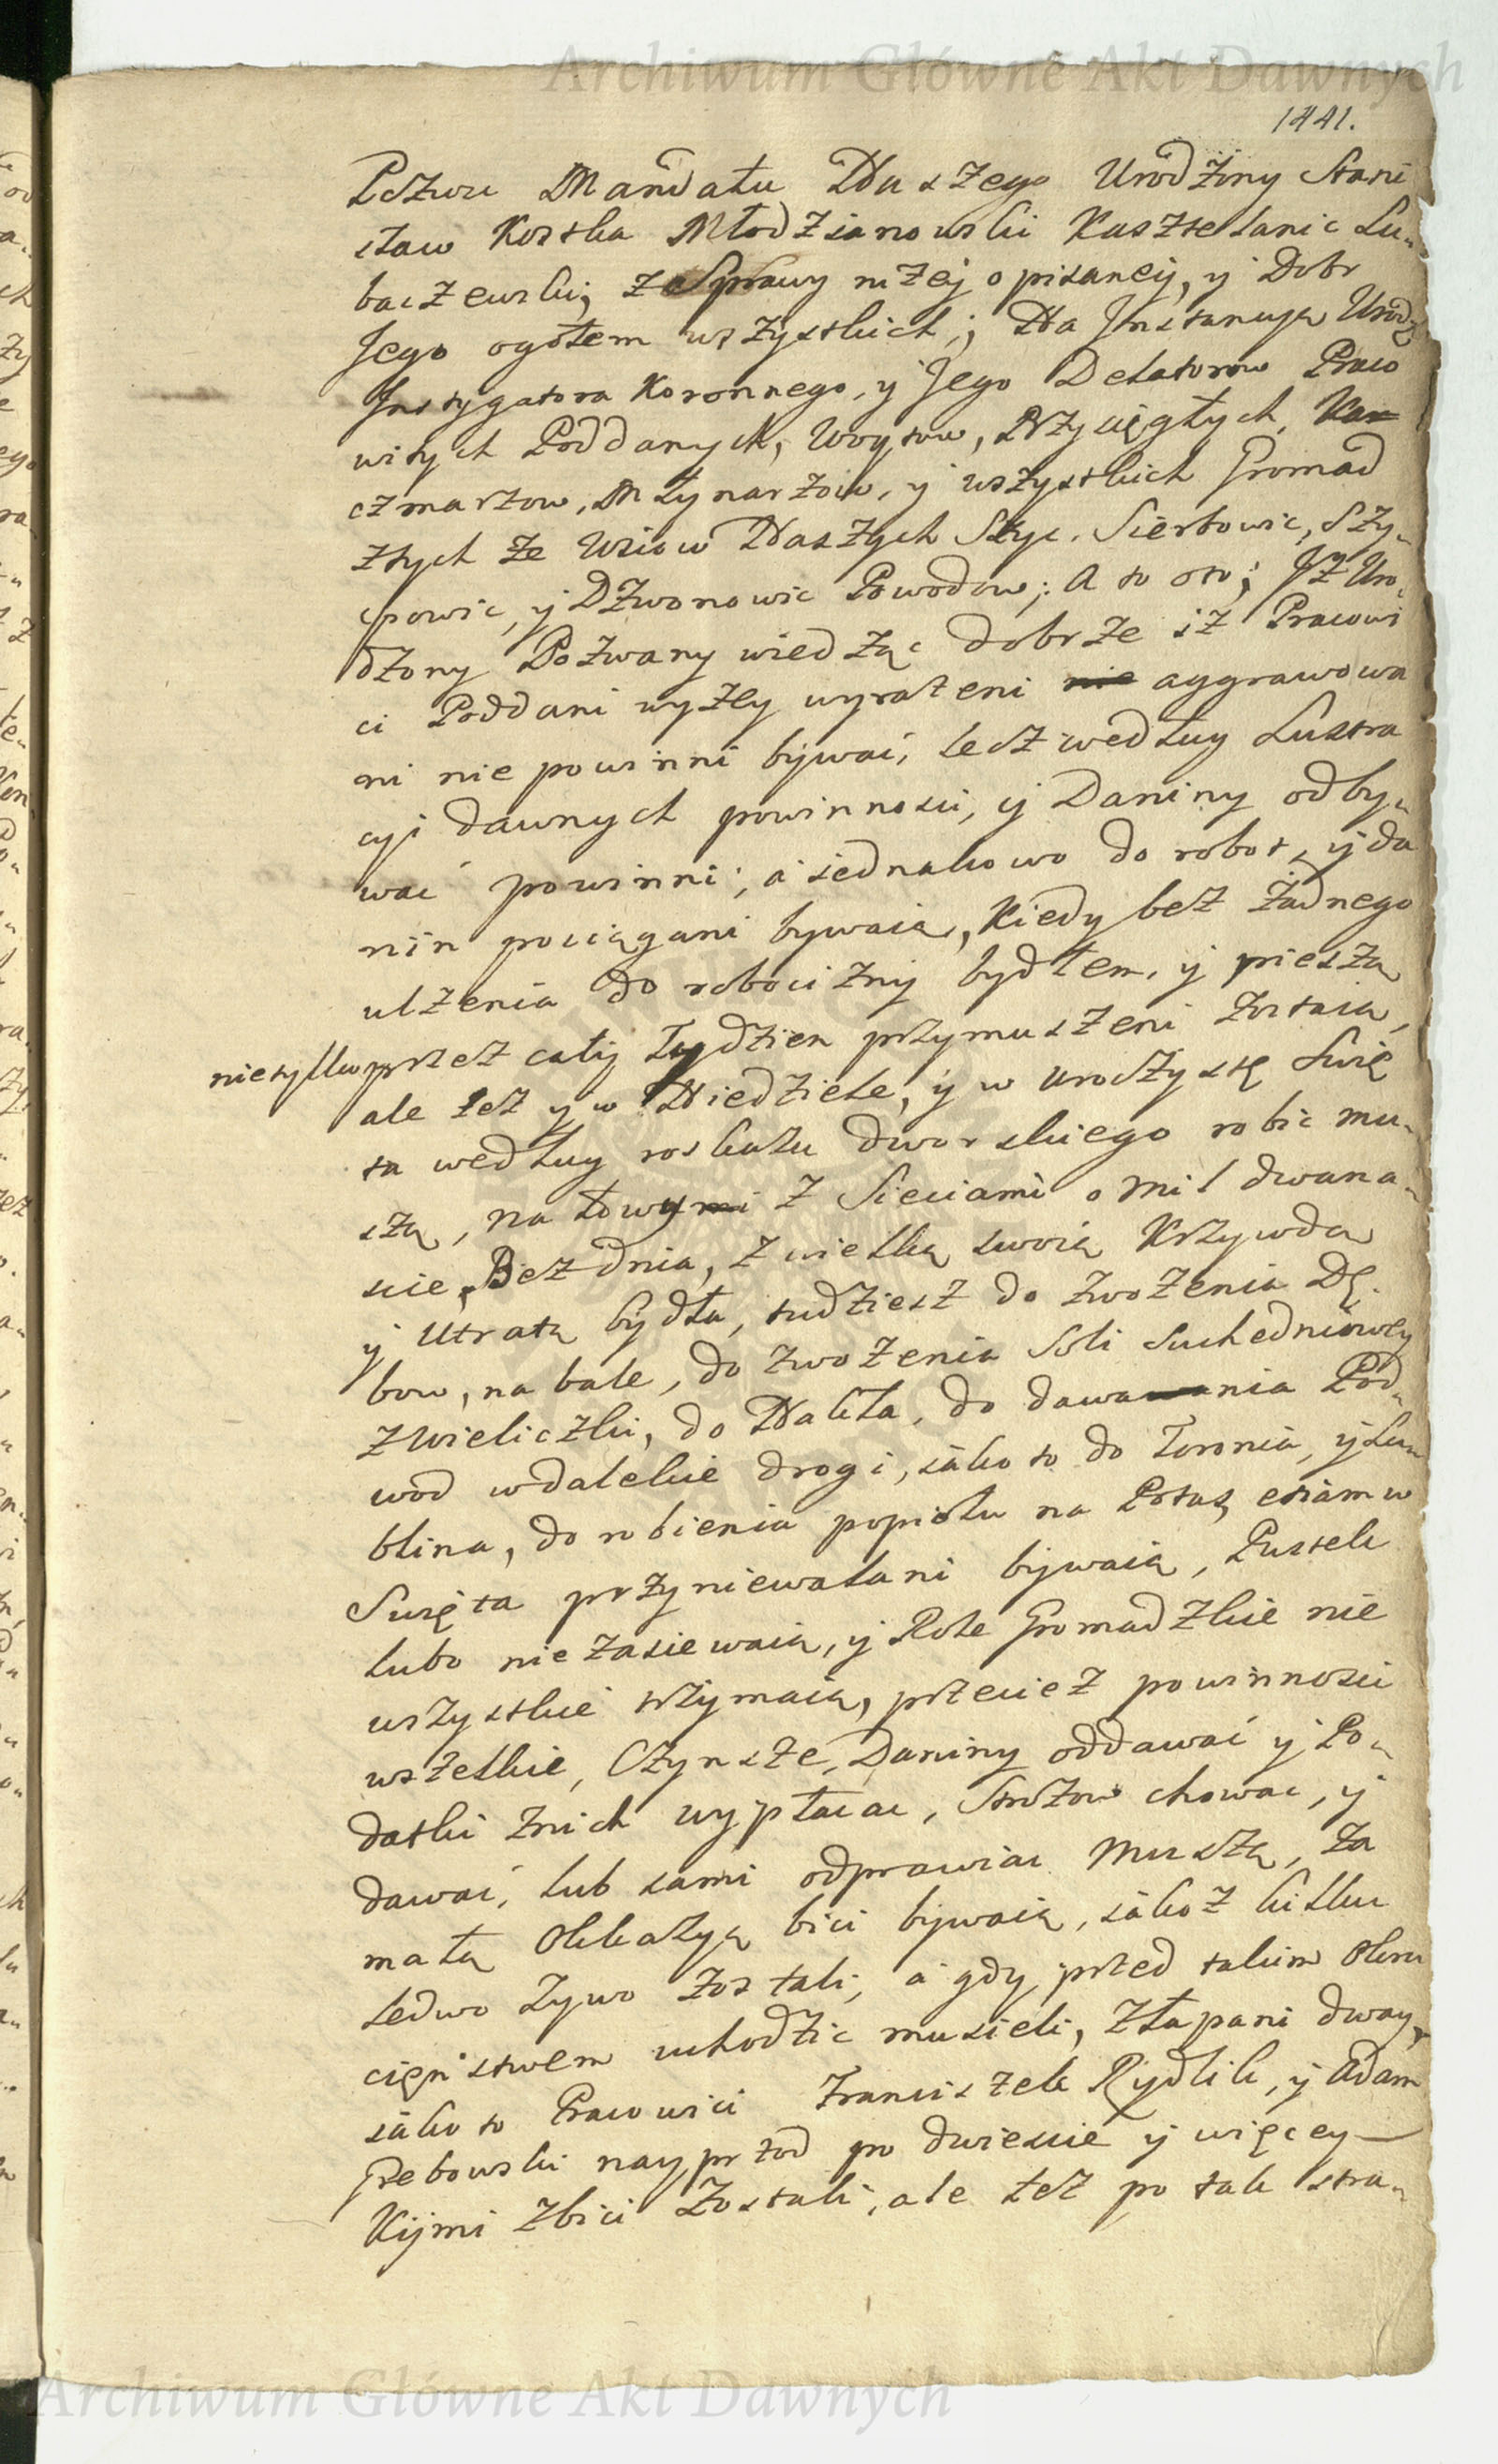 Archiwum Główne Akt Dawnych
1441.
Pozwu Mandatu Naszego Urodzony Stani
sław Kostka Młodzianowski Kasztelanic Lu„
baczewski, z Sprawy niżey opisaney, y Dobr
Jego ogołem wszystkich; Na Jnstancyą Urodz
Jnstygatora Koronnego, y Jego Delatorow Praco
witych Poddanych, Woytow, Przysięgłych, Kar
czmarzow, Młynarzow, y wszystkich Gromad
ztych ze Wsiow Naszych Skyc. Sierbowic, Szy„
cpowic, y Dzwonowic Powodow; A to oto; JŻ Uro„
dzony Pozwany wiedząc dobrze iż Pracowi
ci Poddani wyzey wyrażeni nie aggrawowa
ni nie powinni bywać, lecz według Lustra
cyi dawnych powinności, y Daniny odby„
wać powinni; a iednakowo do robot, y da
nin pociągani bywaią, Kiedy bez Żadnego
ulzenia do robocizny bydłem, y pieszą
nietylko przez cały Tydzien przymuszeni zostaią,
ale też y w Niedziele, y w uroczyste Swię
ta według roskazu dworskiego robic mu„
szą, na łowy z Sieciami o mil dwana„
scie, Bez dnia, z wielką swoią Krzywdą
y Utratą bydła, tudziesz do zwożenia Dę„
bow, na bale, do zwożenia Soli Suchedniowey
z Wieliczki, do Nakła, do dawania Pod„
wod w dalekie drogi, iako to do Torunia, y Lu„
blina, do robienia popiołu na Potasz etiam w
Swięta przyniewalani bywaią, Pustek
lubo nie zasiewaią, y Role Gromadzkie nie
wszystkie trzymaią, przecież powinności
wszelkie, Czynsze, Daniny oddawać y Po„
datki znich wypłacac, Strożow chowac, y
dawać, lub sami odprawiac muszą, za
małą Okkazyą bici bywaią, iakoż kilku
ledwo żywo zostali, a gdy przed takim Okru
cięnstwem uchodzic musieli, złapani dway,
iako to Pracowici Franciszek Rydlik, y Adam
Grebowski nayprzod po dwiescie y więcey
Kijmi zbici zostali, ale też po tak stra„
Archiwum Główne Akt Dawnych